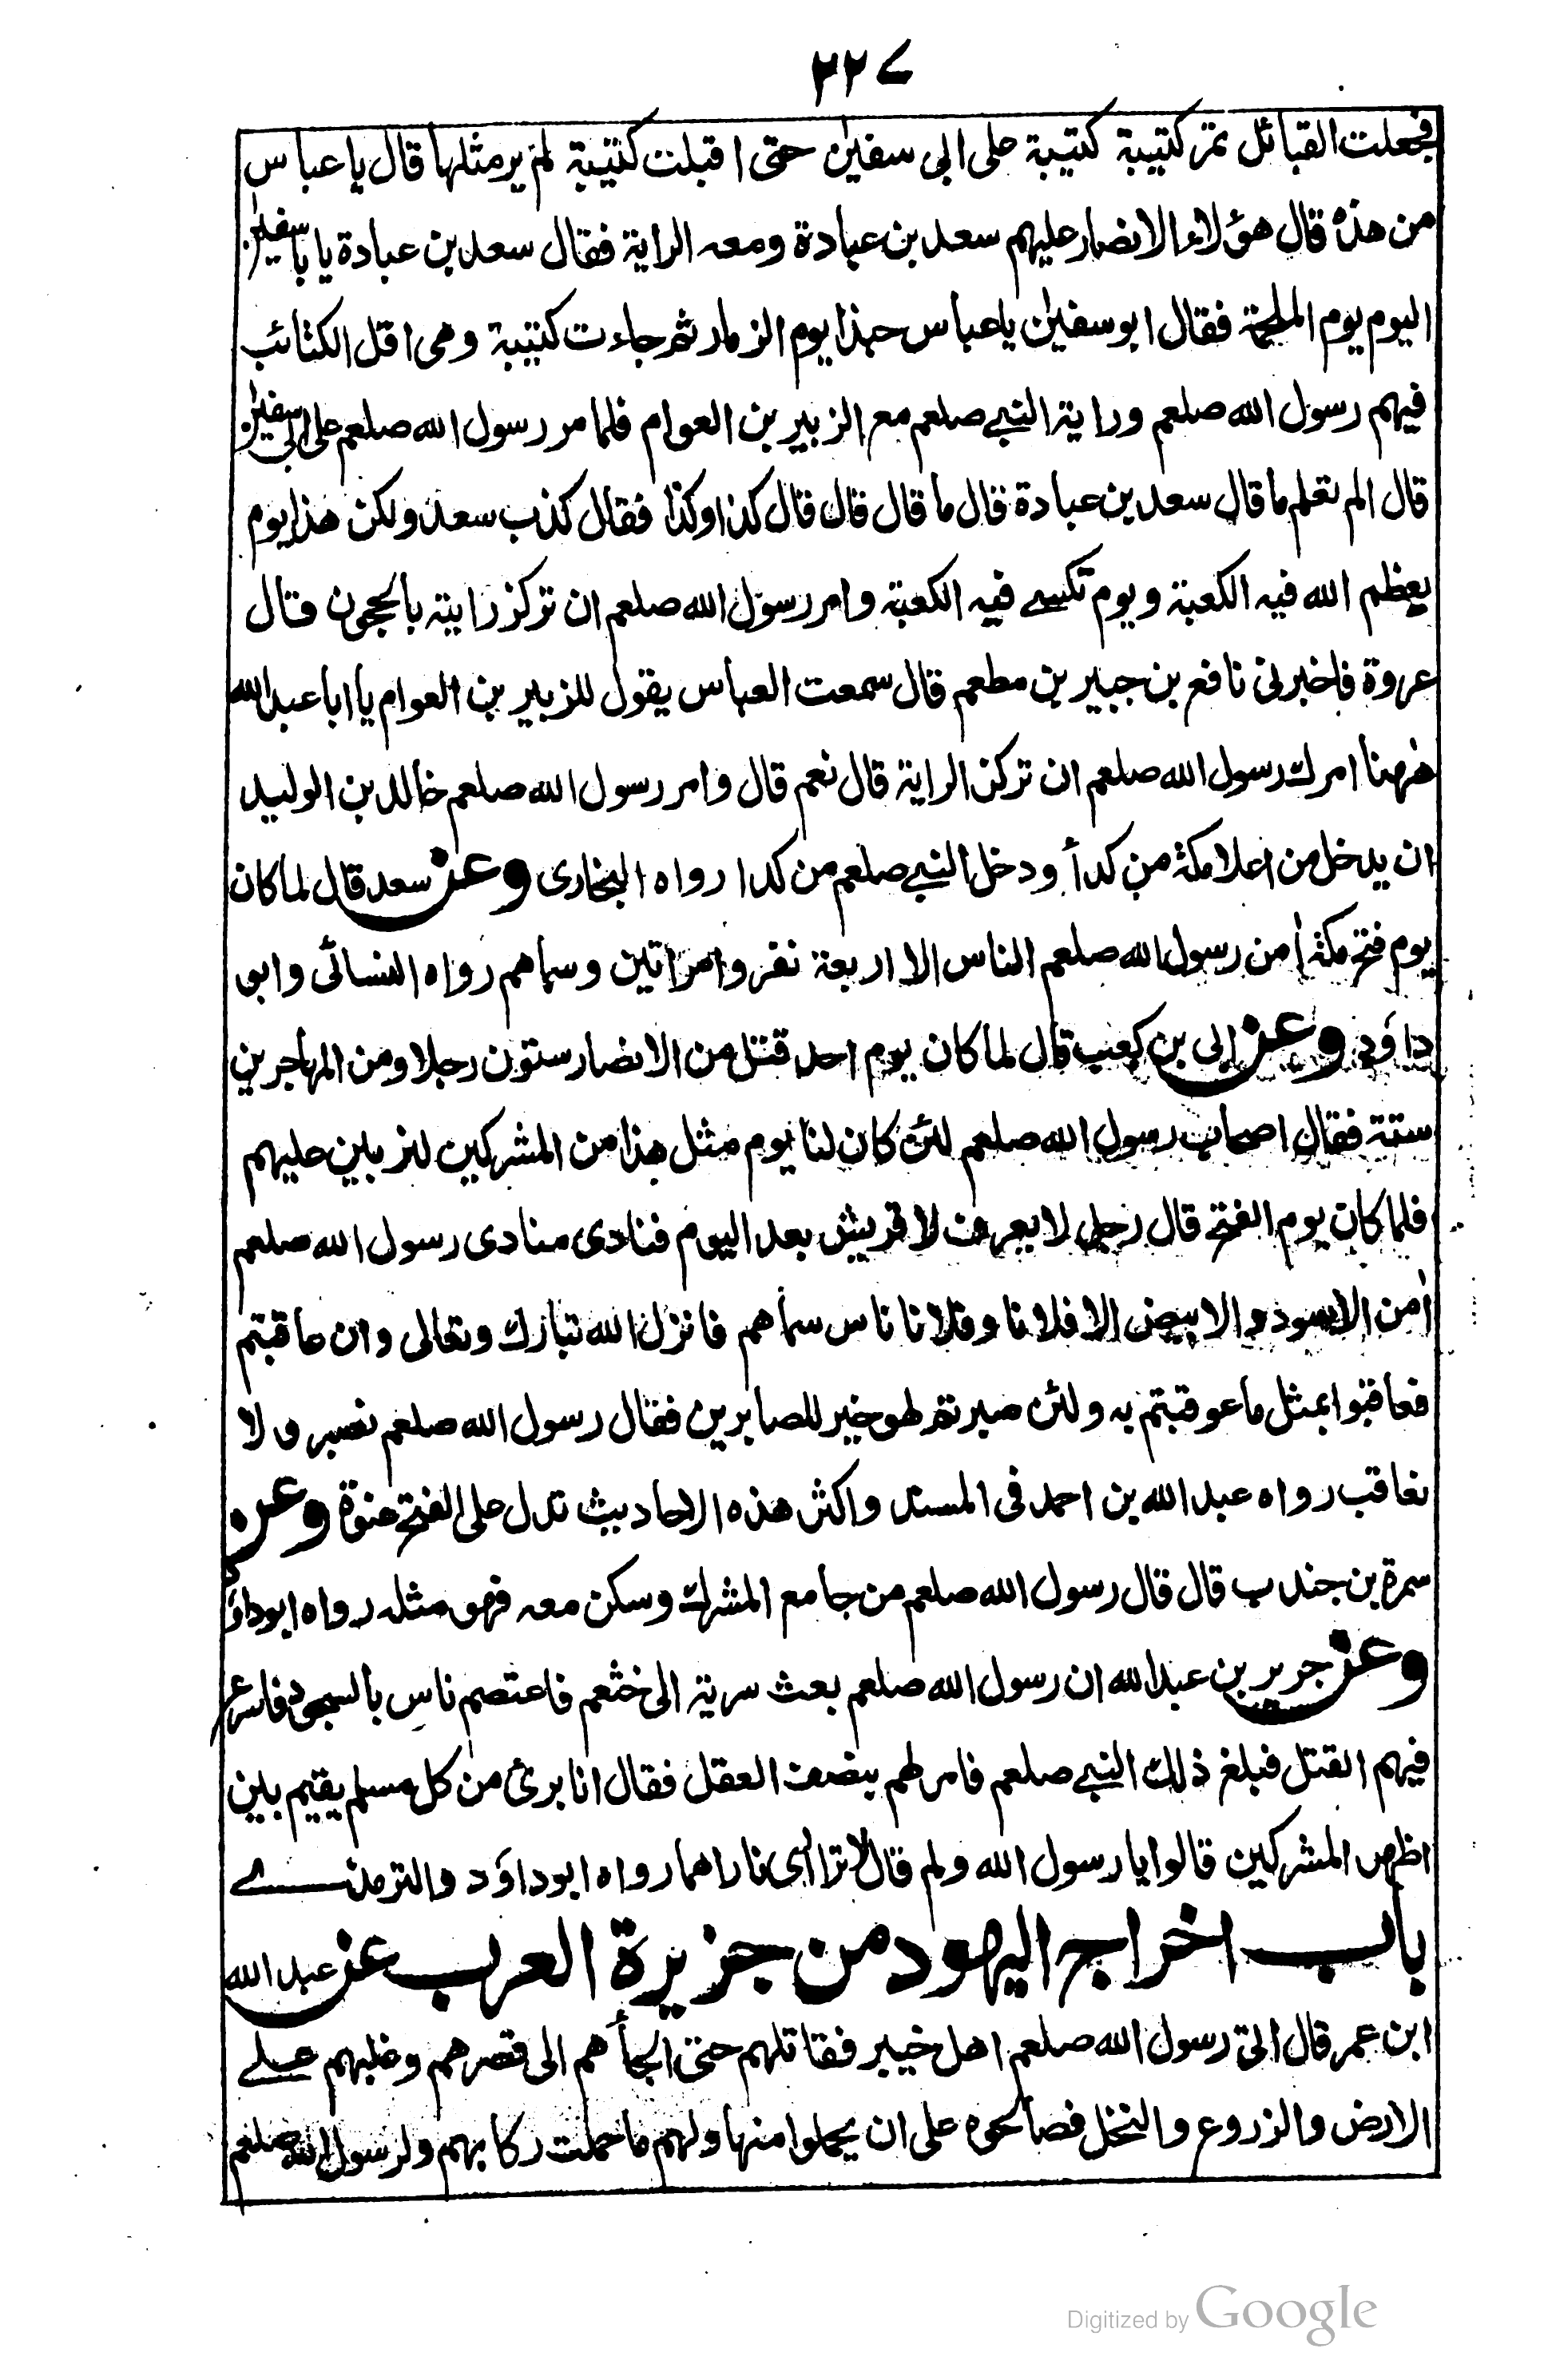 ٢٢٧
فجعلت القبائل تمر كتيبة كتيبة على ابى سفين حتى اقبلت كتيبة لم ير مثلها قال يا عباس
من هذه قال هؤلاء الانصار عليهم سعد بن عبادة ومعه الراية فقال سعد بن عبادة يا با سفين
اليوم يوم الملحمة فقال ابو سفين يا عباس حبذا يوم الزمار ثم جاءت كتيبة وهى اقل الكتائب
فيهم رسول الله صلعم وراية النبى صلعم مع الزبير بن العوام فلما مر رسول الله صلعم على ابى سفين
قال الم تعلم ما قال سعد بن عبادة قال ما قال قال قال كذا وكذا فقال كذب سعد ولكن هذا يوم
يعظم الله فيه الكعبة ويوم تكسى فيه الكعبة وامر رسول الله صلعم ان تركز رايته بالحجون قال
عروة فاخبرنى نافع بن جبير بن مطعم قال سمعت العباس يقول للزبير بن العوام يا ابا عبد الله
ههنا امرك رسول الله صلعم ان تركز الراية قال نعم قال وامر رسول الله صلعم خالد بن الوليد
ان يدخل من اعلا مكة من كداً ودخل النبى صلعم من كدا رواه البخارى وعن سعد قال لما كان
يوم فتح مكة اٰمن رسول الله صلعم الناس الا اربعة نفر وامراتين وسماهم رواه النسائى وابو
داؤد وعن ابى بن كعب قال لما كان يوم احد قتل من الانصار ستون رجلا ومن المهاجرين
ستة فقال اصحاب رسول الله صلعم لئن كان لنا يوم مثل هذا من المشركين لنربين عليهم
فلما كان يوم الفتح قال رجل لا يعرف لا قريش بعد اليوم فنادى منادى رسول الله صلعم
اٰمن الاسود والابيض الا فلانا وفلانا ناس سماهم فانزل الله تبارك وتعالى وان عاقبتم
فعاقبوا بمثل ما عوقبتم به ولئن صبرتم لهو خير للصابرين فقال رسول الله صلعم نصبر ولا
نعاقب رواه عبد الله بن احمد فى المسند واكثر هذه الاحاديث تدل على الفتح عنوة وعن
سمرة بن جندب قال قال رسول الله صلعم من جامع المشرك وسكن معه فهو مثله رواه ابو داؤد
وعن جرير بن عبد الله ان رسول الله صلعم بعث سرية الى خثعم فاعتصم ناس بالسجود فاسرع
فيهم القتل فبلغ ذلك النبى صلعم فامر لهم بنصف العقل فقال انا برئ من كل مسلم يقيم بين
اظهر المشركين قالوا يا رسول الله ولم قال لا تراأى ناراهما رواه ابو داؤد والترمذى
باب اخراج اليهود من جزيرة العرب عن عبد الله
ابن عمر قال اتى رسول الله صلعم اهل خيبر فقاتلهم حتى الجأهم الى قصرهم وغلبهم على
الارض والزروع والنخل فصالحوه على ان يجلوا منها ولهم ما حملت ركابهم ولرسول الله صلعم
Digitized by Google